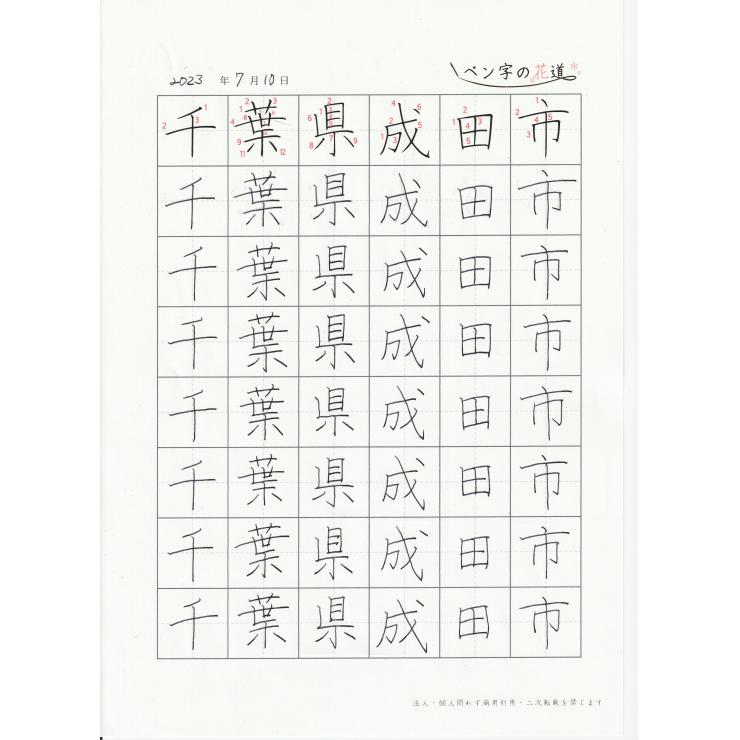 2023 年 7 月 10 日
ペン字の花道
千葉県成田市
千葉県成田市
千葉県成田市
千葉県成田市
千葉県成田市
千葉県成田市
千葉県成田市
千葉県成田市
法人・個人問わず商用利用・二次転載を禁じます